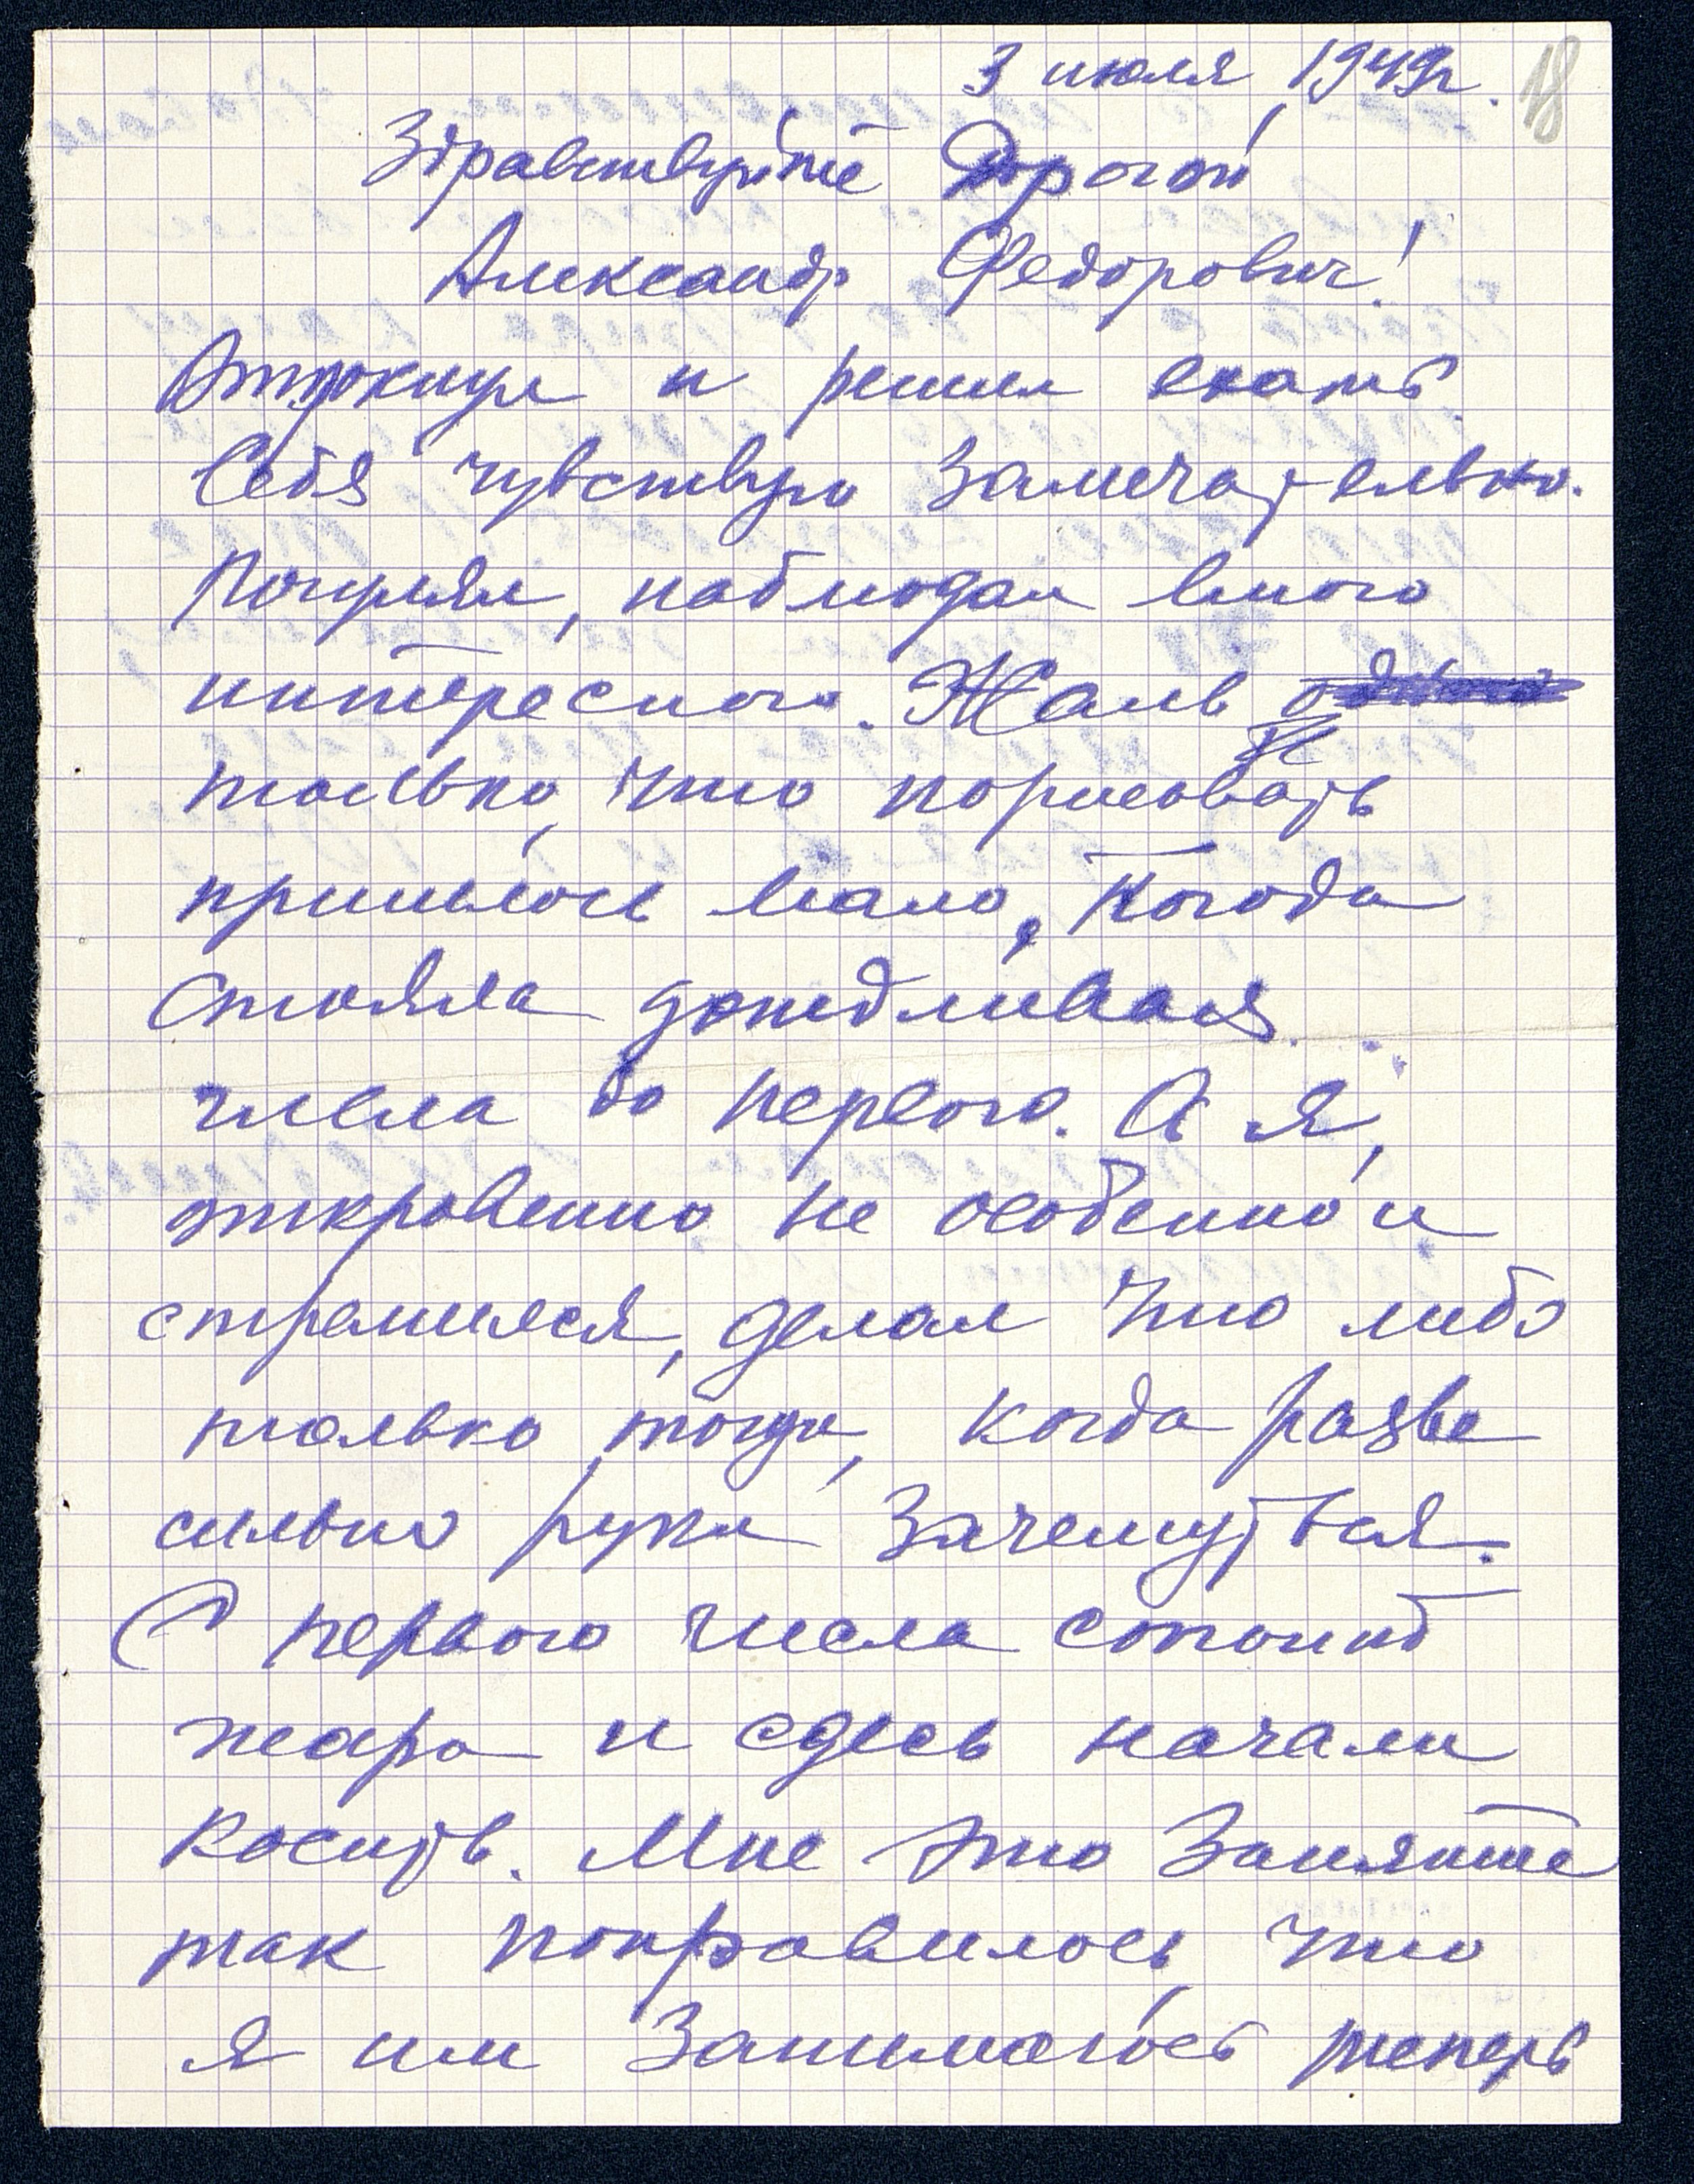 3 июля, 1949г.
18
Здравствуйте Дорогой
Александр Федорович!
Отдохнул и решил ехать.
Себя чувствую замечательно.
Погулял, наблюдал много
интересного. Жаль
только, что порисовать
пришлось мало, погода
стояла дождливая
числа до первого. А я,
откровенно не особенно и
стремился, делал что либо
только тогда, когда разве
сильно рука зачешуться.
С первого числа стоит
жара и сдесь начали
косить. Мне это занятие
так понравилось, что
я им занимаюсь теперь